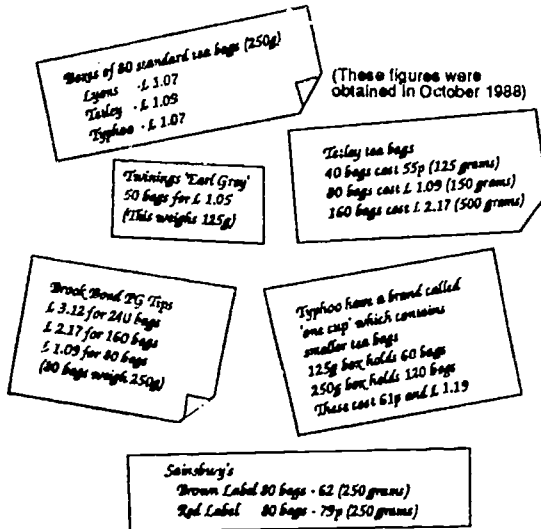 Boxes of 80 standard tea bags (250g)
Lyons - £ 1.07
Tetley - £ 1.09
Typhoo - £ 1.07
(These figures were
obtained in October 1988)
Tetley tea bags
40 bags cost 55p (125 grams)
80 bags cost £ 1.09 (150 grams)
160 bags cost £ 2.17 (500 grams)
Twinings 'Earl Grey'
50 bags for £ 1.05
(This weighs 125g)
Brook Bond PG Tips
£ 3.12 for 240 bags
£ 2.17 for 160 bags
£ 1.09 for 80 bags
(80 bags weigh 250g)
Typhoo have a brand called
'one cup' which contains
smaller tea bags
125g box holds 60 bags
250g box holds 120 bags
These cost 61p and £ 1.19
Sainsbury's
Brown Label 80 bags - 62 (250 grams)
Red Label 80 bags - 79p (250 grams)